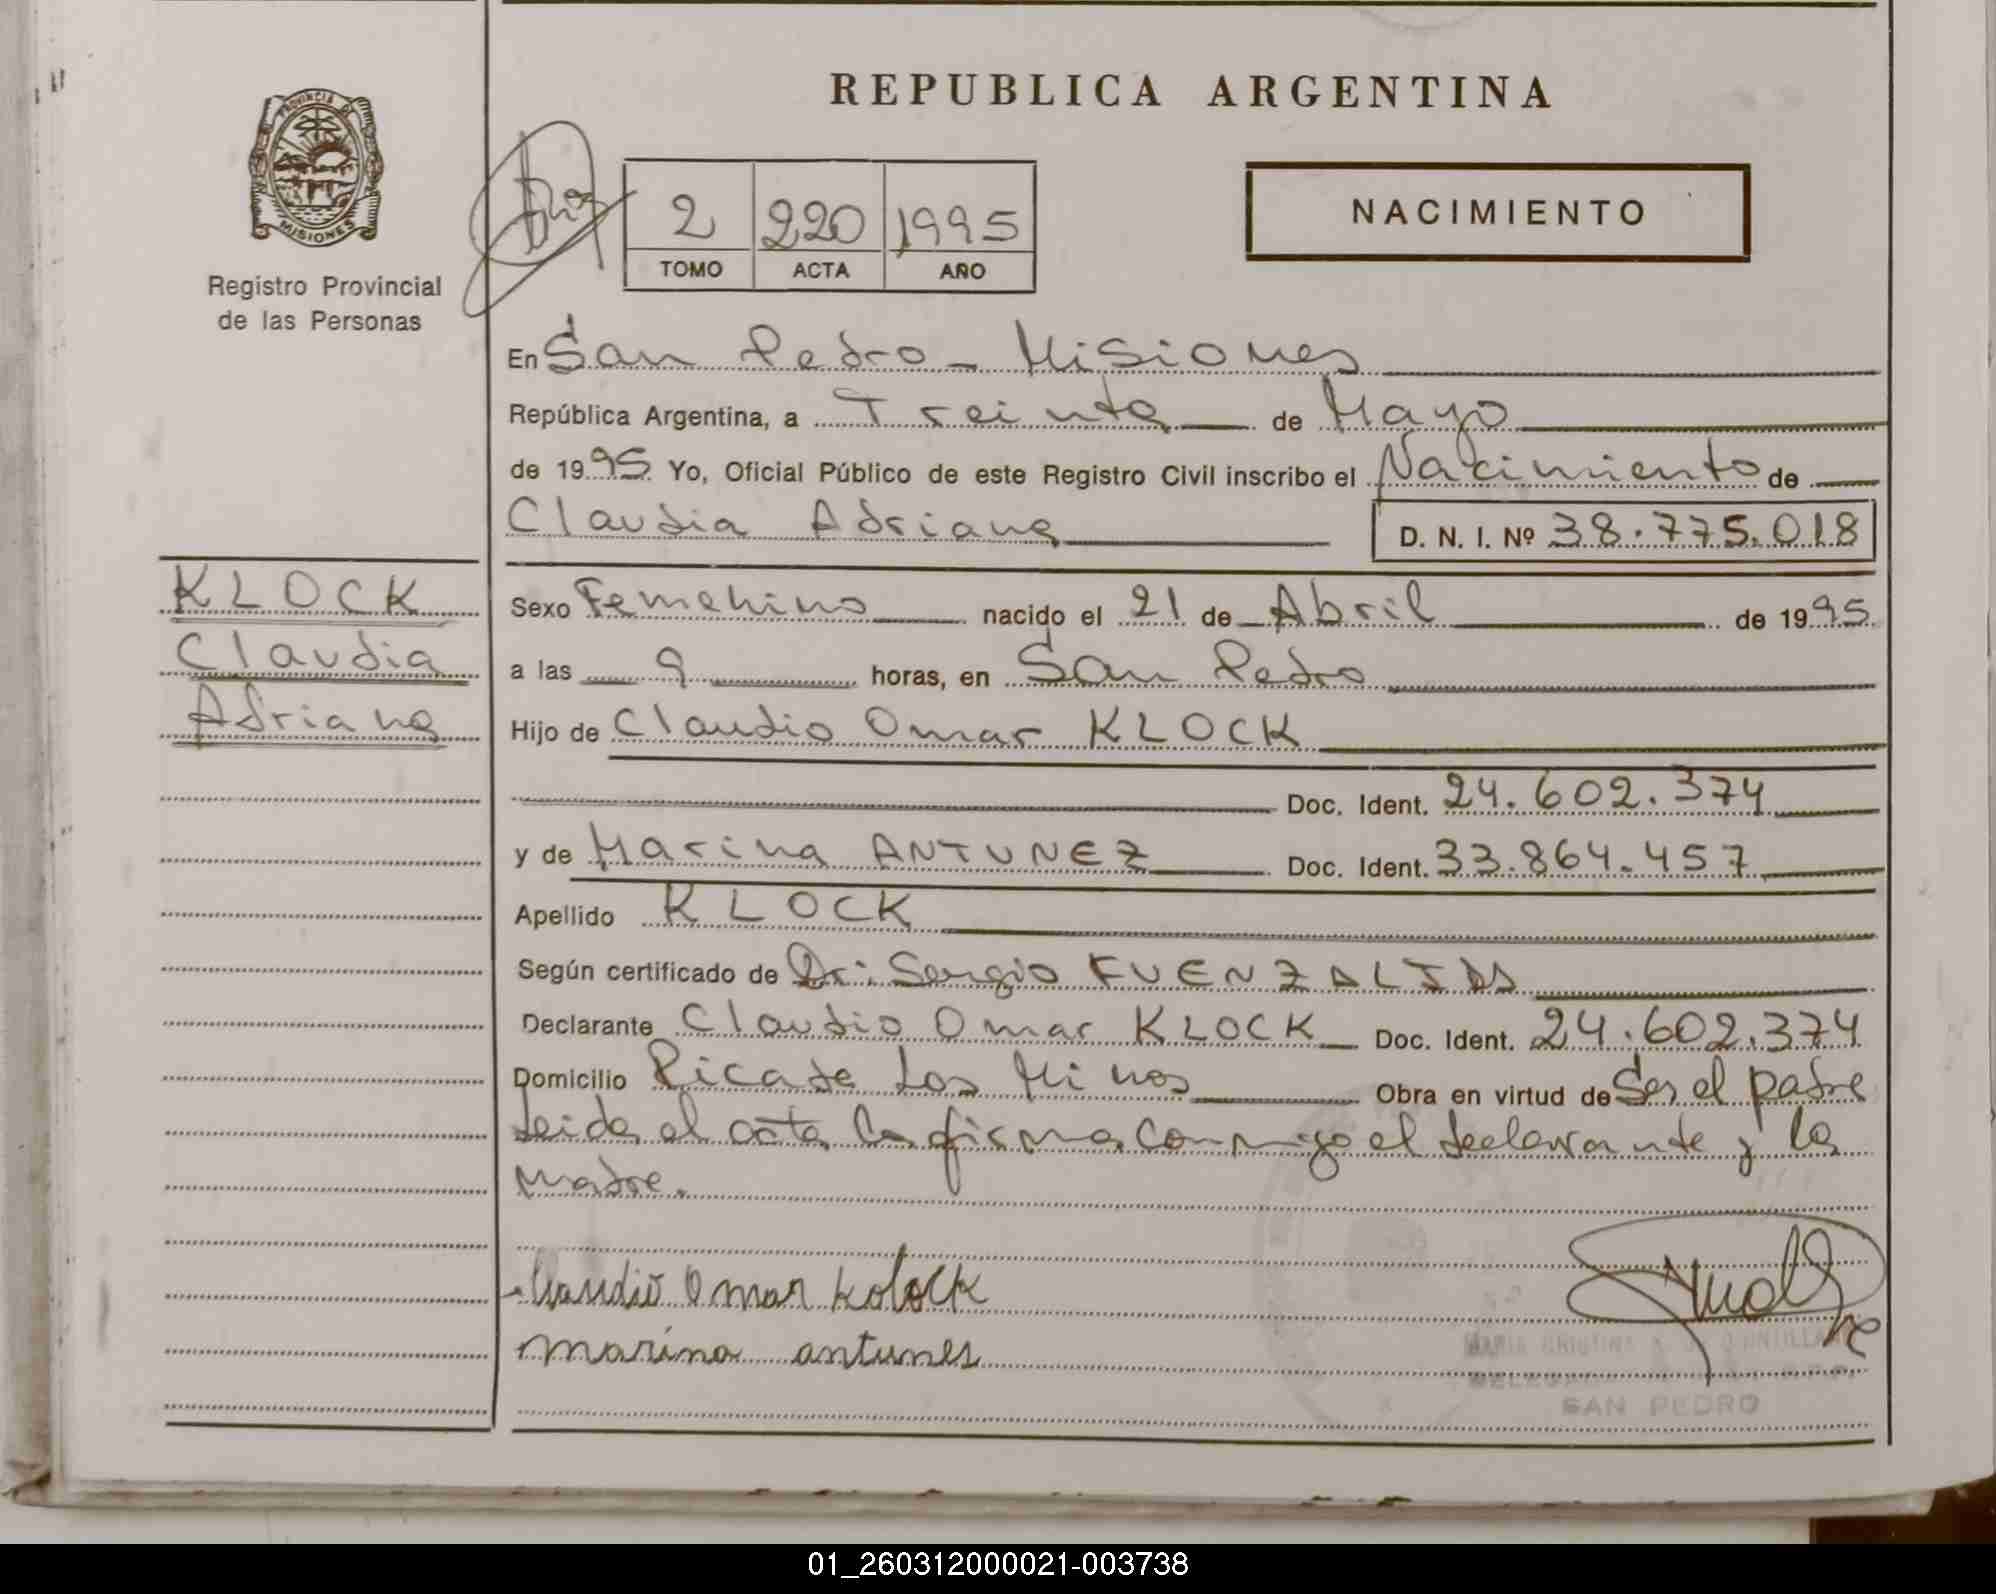 REPUBLICA ARGENTINA
PROVINCIA DE
MISIONES
Registro Provincial
de las Personas
2 220 1995
TOMO ACTA AÑO
NACIMIENTO
En San Pedro - Misiones
República Argentina, a Treinta de Mayo
de 1995 Yo, Oficial Público de este Registro Civil inscribo el Nacimiento de
Claudia Adriana D. N. I. Nº 38.775.018
KLOCK
Claudia
Adriana
Sexo Femenino nacido el 21 de Abril de 1995
a las 9 horas, en San Pedro
Hijo de Claudio Omar KLOCK
Doc. Ident. 24.602.374
y de Marina ANTUNEZ Doc. Ident. 33.864.457
Apellido KLOCK
Según certificado de Dr: Sergio FUENZALIDA
Declarante Claudio Omar KLOCK Doc. Ident. 24.602.374
Domicilio Picada Los Minos Obra en virtud de Ser el padre
Leida el acta la firma conmigo el declarante y la
madre.
Claudio Omar Kolock
marina antunes
MARIA CRISTINA
SAN PEDRO
01_260312000021-003738